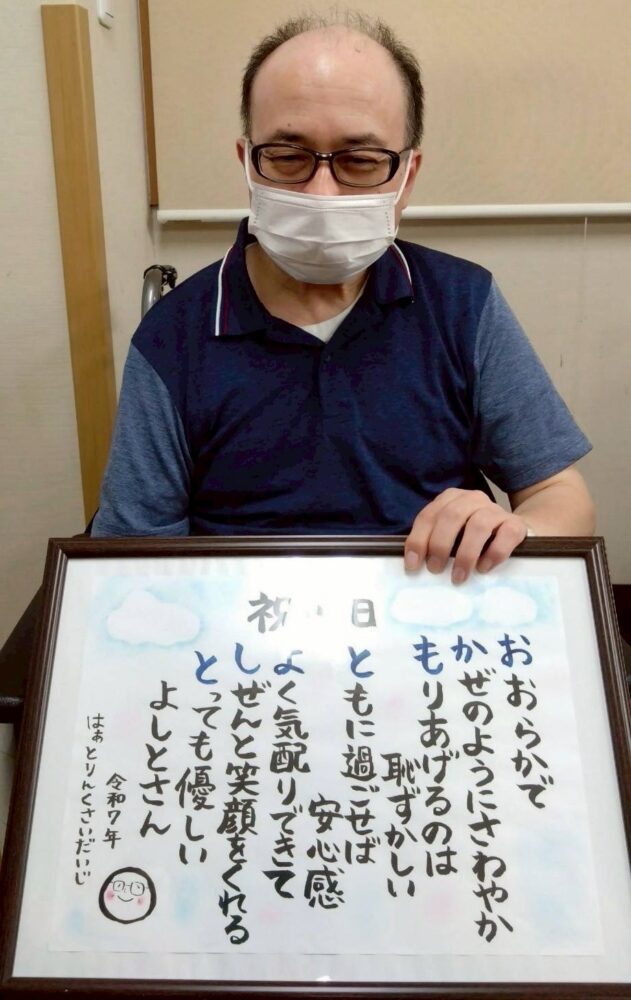 祝 日
おおらかで
かぜのようにさわやか
もりあげるのは
恥ずかしい
ともに過ごせば
安心感
よく気配りできて
しぜんと笑顔をくれる
とっても優しい
よしとさん
令和7年
はぁとりんくさいだいじ